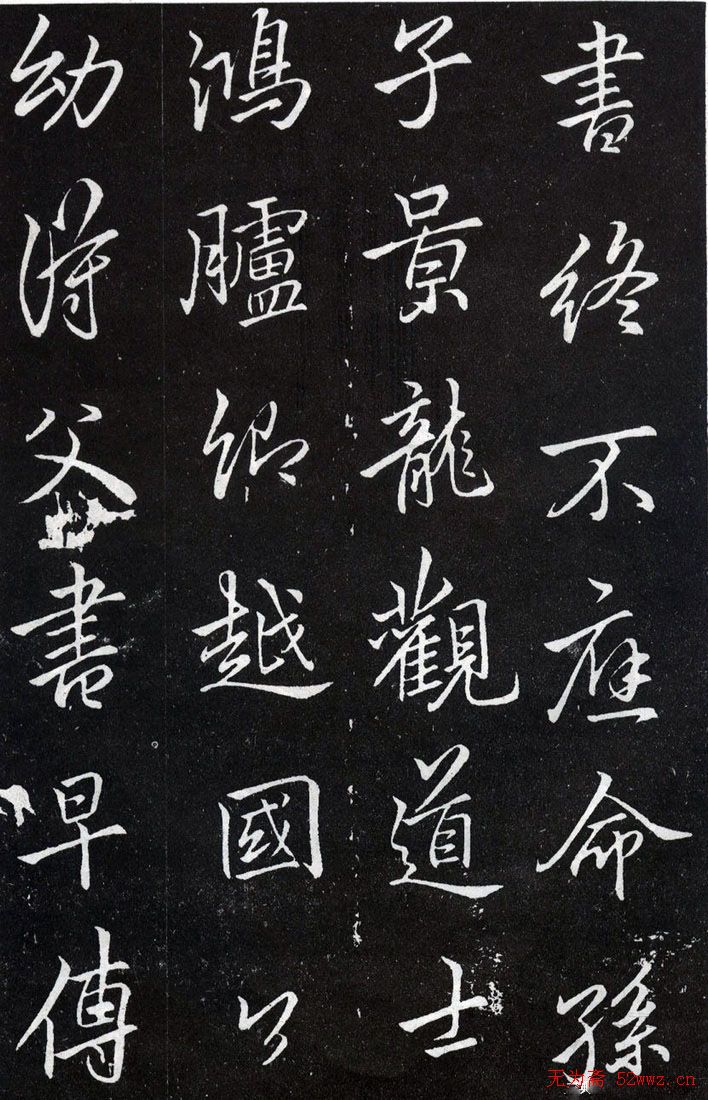 書終不應命孫
子景龍觀道士
鴻臚卿越國公
幼得父書早傳
无为斋 52wwz.cn